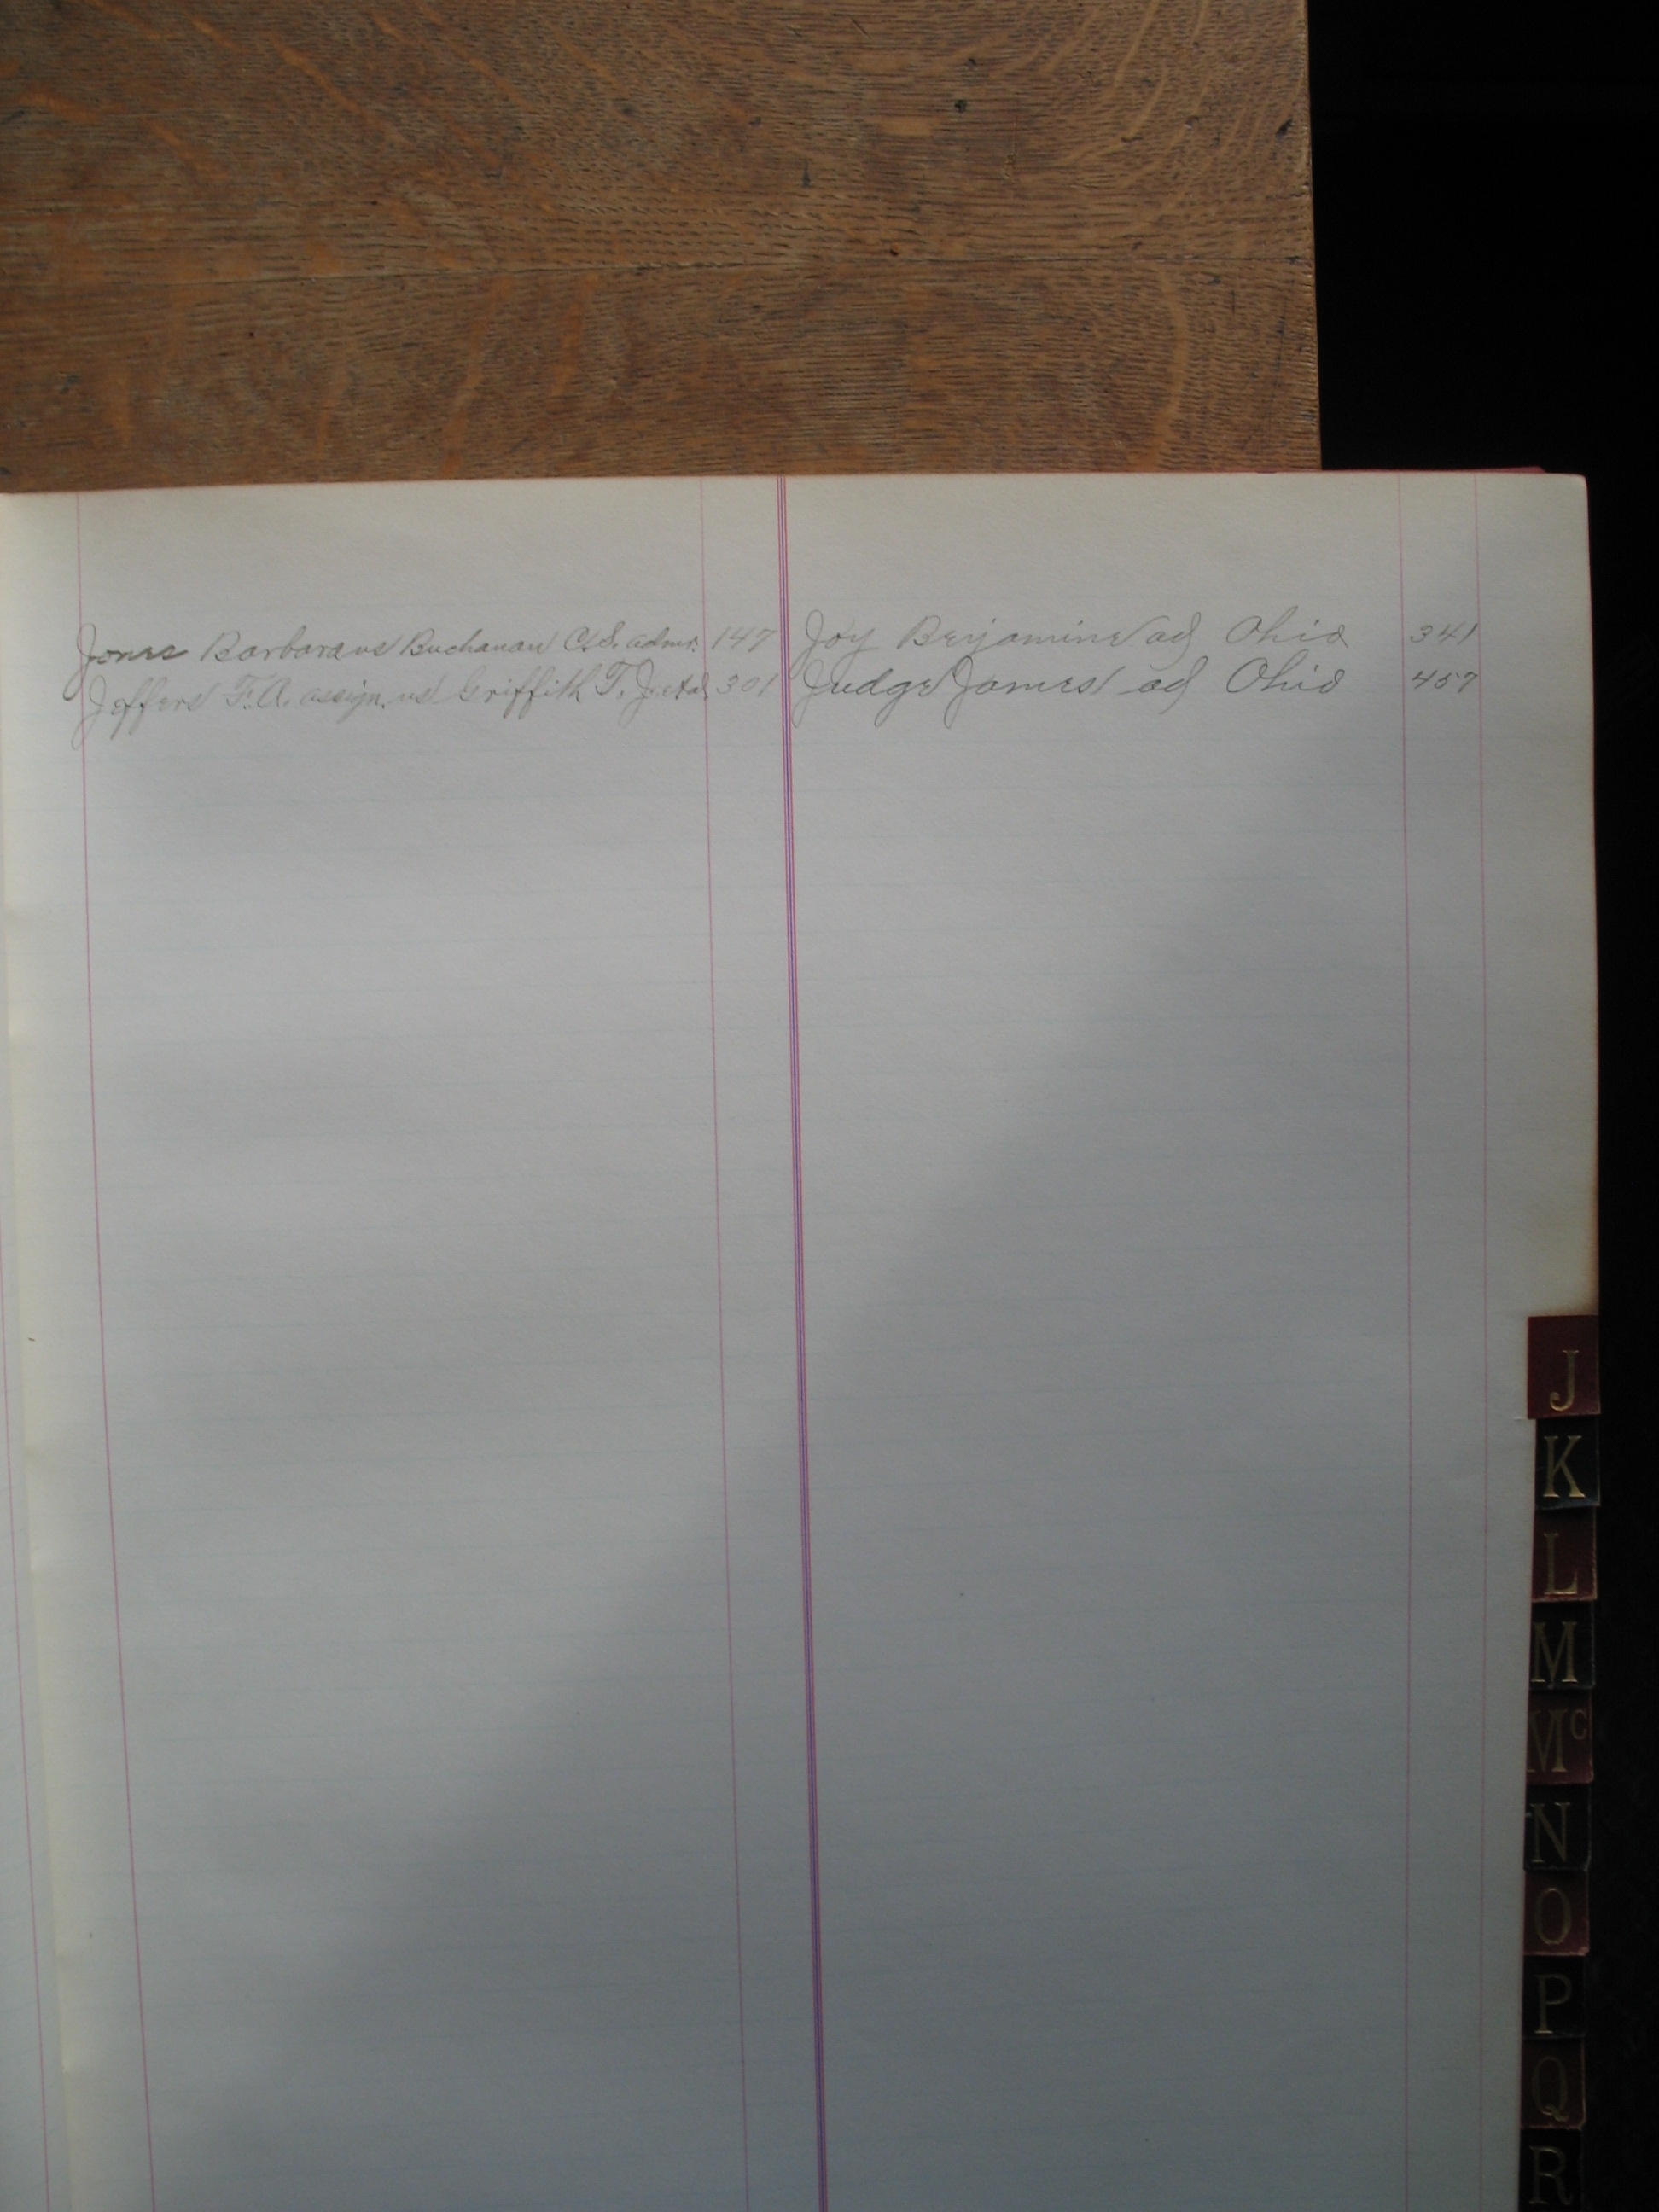 Jones Barbara vs Buchanan C.S. admr. 147
Jeffers F. A. assign. vs Griffith T. J. et al 301
Joy Benjamine ads Ohio 341
Judge James ads Ohio 457
J
K
L
M
Mc
N
O
P
Q
R